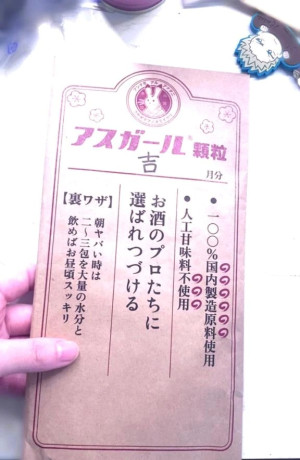 アスガール 顆粒
吉
月分
● 一〇〇％国内製造原料使用
● 人工甘味料不使用
お酒のプロたちに
選ばれつづける
【裏ワザ】朝ヤバい時は
二〜三包を大量の水分と
飲めばお昼頃スッキリ